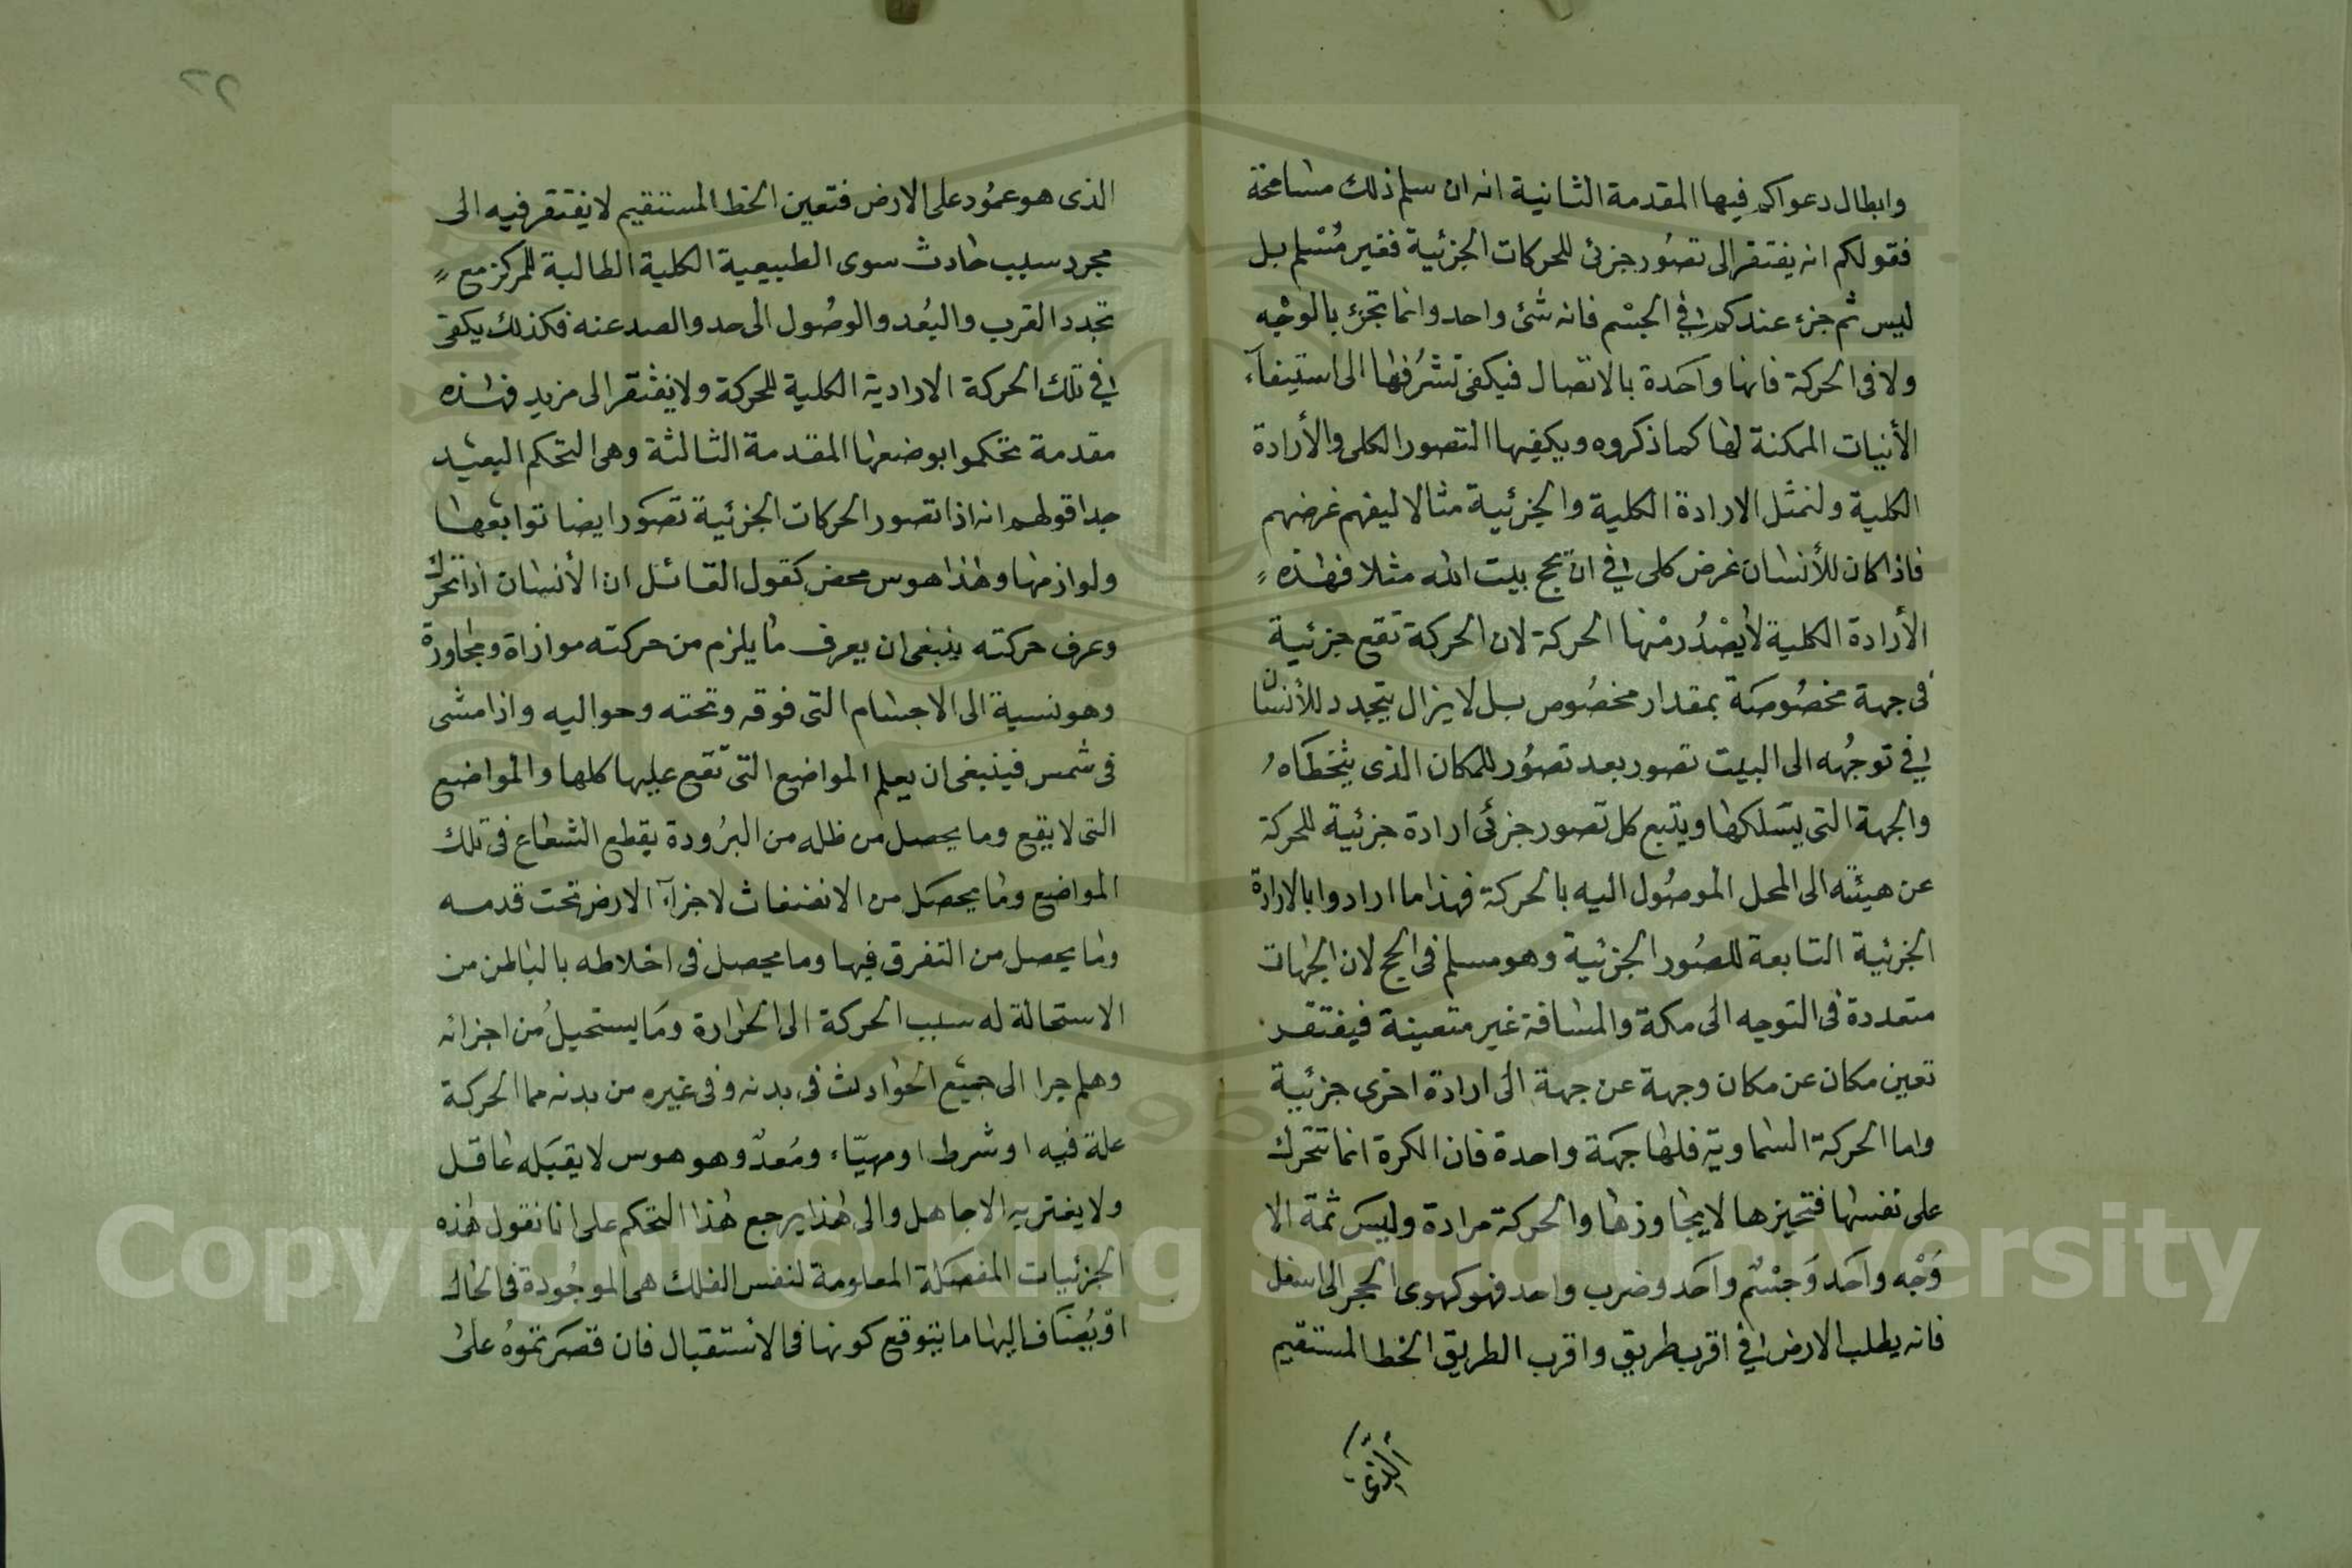 وابطال دعواكم فيها المقدمة الثانية انه ان سلم ذلك مسامحة
فقولكم انه يفتقر الى تصور جزئى للحركات الجزئية فغير مسلم بل
ليس ثم جزء عندكم فى الجسم فانه شئ واحد وانما تجزئ بالوجه
ولا فى الحركة فانها واحدة بالاتصال فيكفى تشرفها الى استيفآء
الأنيات الممكنة لها كما ذكروه ويكفيها التصور الكلى والأرادة
الكلية ولنمثل الارادة الكلية والجزئية مثالا ليفهم غرضهم
فاذا كان للأنسان غرض كلى فى ان يحج بيت الله مثلا فهذه
الأرادة الكلية لا يصدر منها الحركة لان الحركة تقع جزئية
فى جهة مخصوصة بمقدار مخصوص بل لا يزال يتجدد للأنسان
فى توجهه الى البيت تصور بعد تصور للمكان الذى يتخطاه
والجهة التى يسلكها ويتبع كل تصور جزئى ارادة جزئية للحركة
عن هيئته الى المحل الموصول اليه بالحركة فهذا ما ارادوا بالارادة
الجزئية التابعة للصور الجزئية وهو مسلم فى الحج لان الجهات
متعددة فى التوجه الى مكة والمسافة غير متعينة فيفتقر
تعين مكان عن مكان وجهة عن جهة الى ارادة اخرى جزئية
واما الحركة السماوية فلها جهة واحدة فان الكرة انما تتحرك
على نفسها فتحيزها لا يجاوزها والحركة مرادة وليس ثمة الا
وجه واحد وجسم واحد وضرب واحد فهو كهوى الحجر الى اسفل
فانه يطلب الارض فى اقرب طريق واقرب الطريق الخط المستقيم
الذى
٢٢
الذى هو عمود على الارض فتعين الخط المستقيم لا يفتقر فيه الى
مجرد سبب حادث سوى الطبيعية الكلية الطالبة للمركز مع
تجدد القرب والبعد والوصول الى حد والصد عنه فكذلك يكفى
فى تلك الحركة الارادية الكلية للحركة ولا يفتقر الى مزيد فهذه
مقدمة تحكموا بوضعها المقدمة الثالثة وهى التحكم البعيد
جدا قولهم انه اذا تصور الحركات الجزئية تصور ايضا توابعها
ولوازمها وهذا هوس محض كقول القائل ان الأنسان اذا تحرك
وعرف حركته ينبغى ان يعرف ما يلزم من حركته موازاة ومجاورة
وهو نسبة الى الاجسام التى فوقه وتحته وحواليه واذا مشى
فى شمس فينبغى ان يعلم المواضع التى تقع عليها كلها والمواضع
التى لا يقع وما يحصل من ظله من البرودة يقطع الشعاع فى تلك
المواضع وما يحصل من الانضغاث لاجزآء الارض تحت قدمه
وما يحصل من التفرق فيها وما يحصل فى اخلاطه بالباطن من
الاستحالة له سبب الحركة الى الحرارة وما يستحيل من اجزائه
وهلم جرا الى جميع الحوادث فى بدنه وفى غيره من بدنه مما الحركة
علة فيه او شرط او مهيّاء ومعدّ وهو هوس لا يقبله عاقل
ولا يغتر به الا جاهل والى هذا يرجع هذا التحكم على انا نقول هذه
الجزئيات المفصلة المعلومة لنفس الفلك هى الموجودة فى الحال
او يضاف اليها ما يتوقع كونها فى الاستقبال فان قصرتموه على
Copyright © King Saud University